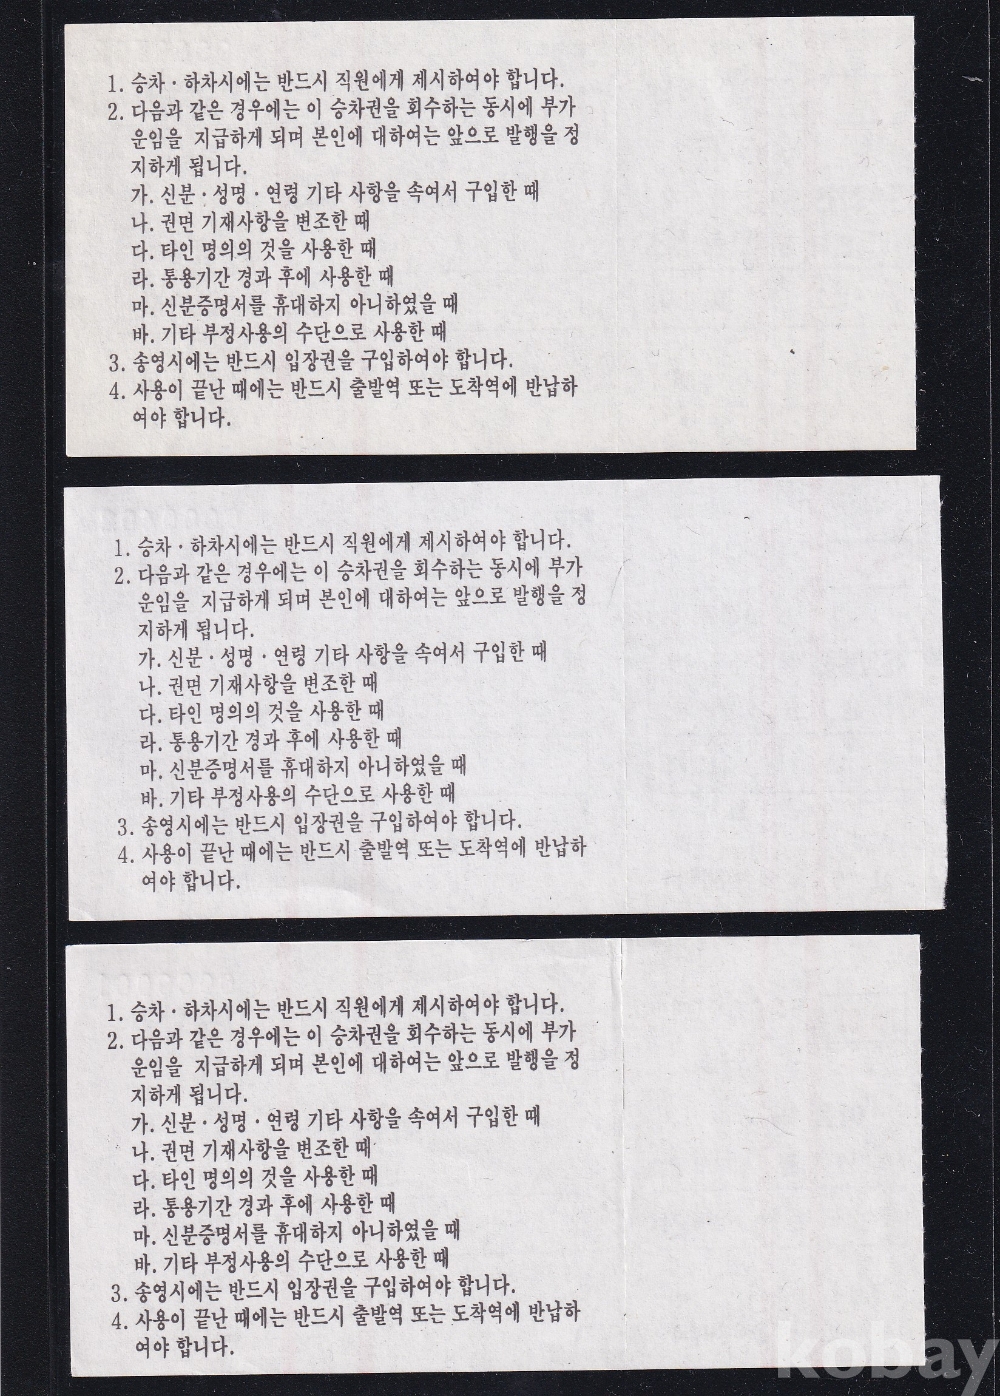 1. 승차·하차시에는 반드시 직원에게 제시하여야 합니다.
2. 다음과 같은 경우에는 이 승차권을 회수하는 동시에 부가
운임을 지급하게 되며 본인에 대하여는 앞으로 발행을 정
지하게 됩니다.
가. 신분·성명·연령 기타 사항을 속여서 구입한 때
나. 권면 기재사항을 변조한 때
다. 타인 명의의 것을 사용한 때
라. 통용기간 경과 후에 사용한 때
마. 신분증명서를 휴대하지 아니하였을 때
바. 기타 부정사용의 수단으로 사용한 때
3. 송영시에는 반드시 입장권을 구입하여야 합니다.
4. 사용이 끝난 때에는 반드시 출발역 또는 도착역에 반납하
여야 합니다.
1. 승차·하차시에는 반드시 직원에게 제시하여야 합니다.
2. 다음과 같은 경우에는 이 승차권을 회수하는 동시에 부가
운임을 지급하게 되며 본인에 대하여는 앞으로 발행을 정
지하게 됩니다.
가. 신분·성명·연령 기타 사항을 속여서 구입한 때
나. 권면 기재사항을 변조한 때
다. 타인 명의의 것을 사용한 때
라. 통용기간 경과 후에 사용한 때
마. 신분증명서를 휴대하지 아니하였을 때
바. 기타 부정사용의 수단으로 사용한 때
3. 송영시에는 반드시 입장권을 구입하여야 합니다.
4. 사용이 끝난 때에는 반드시 출발역 또는 도착역에 반납하
여야 합니다.
1. 승차·하차시에는 반드시 직원에게 제시하여야 합니다.
2. 다음과 같은 경우에는 이 승차권을 회수하는 동시에 부가
운임을 지급하게 되며 본인에 대하여는 앞으로 발행을 정
지하게 됩니다.
가. 신분·성명·연령 기타 사항을 속여서 구입한 때
나. 권면 기재사항을 변조한 때
다. 타인 명의의 것을 사용한 때
라. 통용기간 경과 후에 사용한 때
마. 신분증명서를 휴대하지 아니하였을 때
바. 기타 부정사용의 수단으로 사용한 때
3. 송영시에는 반드시 입장권을 구입하여야 합니다.
4. 사용이 끝난 때에는 반드시 출발역 또는 도착역에 반납하
여야 합니다.
kobay